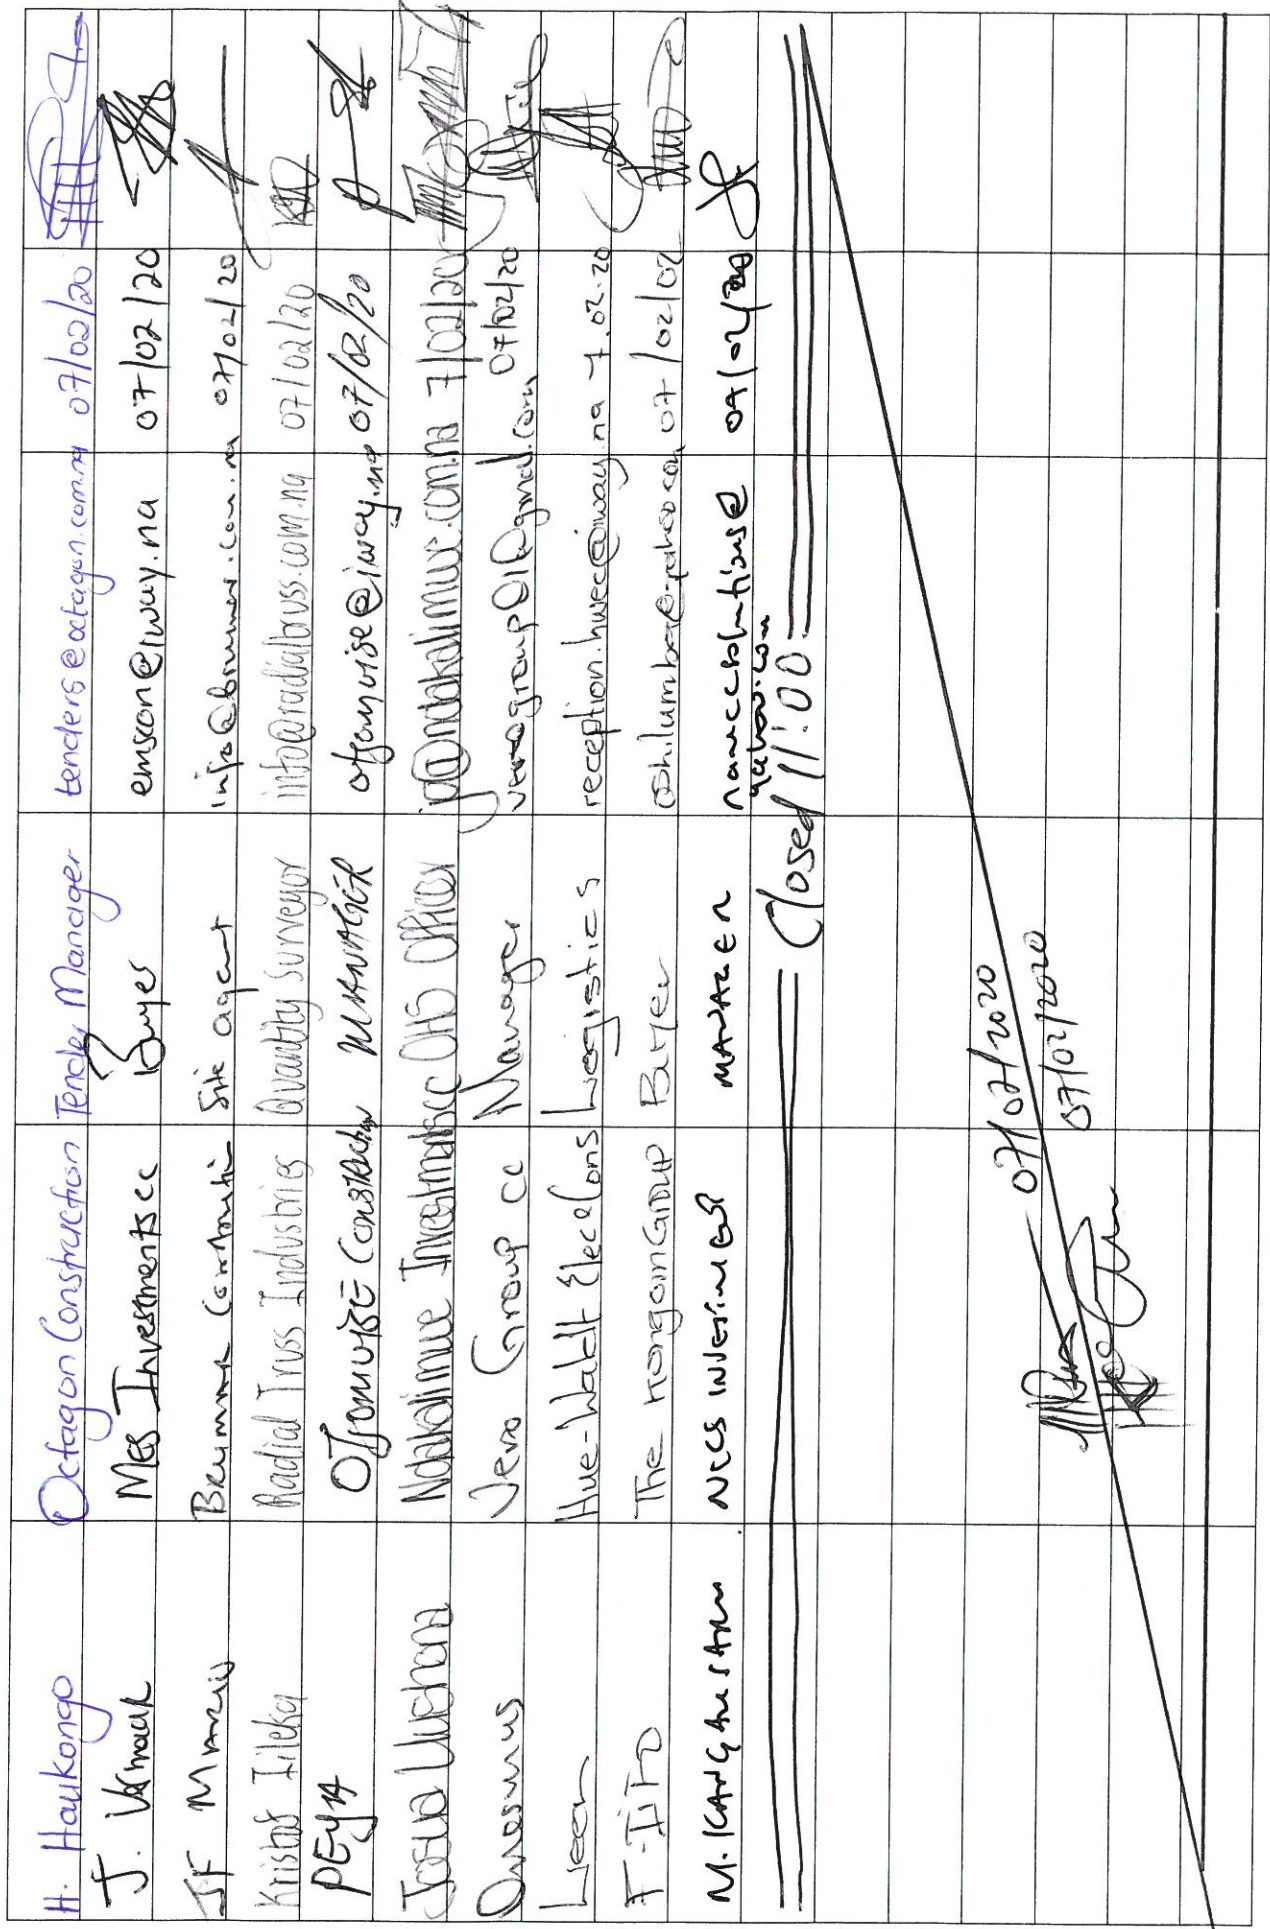 H. Haukongo Octagon Construction Tender Manager tenders@octagon.com.na 07/02/20
J. Vermaak MES Investments cc Buyer emscon@iway.na 07/02/20
JF Brummer Construction Site agent info@brummer.com.na 07/02/20
Kristof Iileka Radial Truss Industries Quantity Surveyor info@radialtruss.com.na 07/02/20
PEyA OTjomuise Construction MANAGER otjomuise@iway.na 07/02/20
Josua Uushona Ndakalimwe Investments cc OHS Officer jo@ndakalimwe.com.na 7/02/20
Onesmus Vero Group cc Manager verogroup01@gmail.com 07/02/20
Leen Hue-Waldt Elec & Cons Logistics reception.hwec@iway.na 7.02.20
F-IiTO The Hongoin Group Buyer oshilumba@yahoo.com 07/02/02
M. NCCS INVESTMENT MANAGER 07/02/20
yahoo.com
Closed 11:00
07/02/2020
07/02/2020